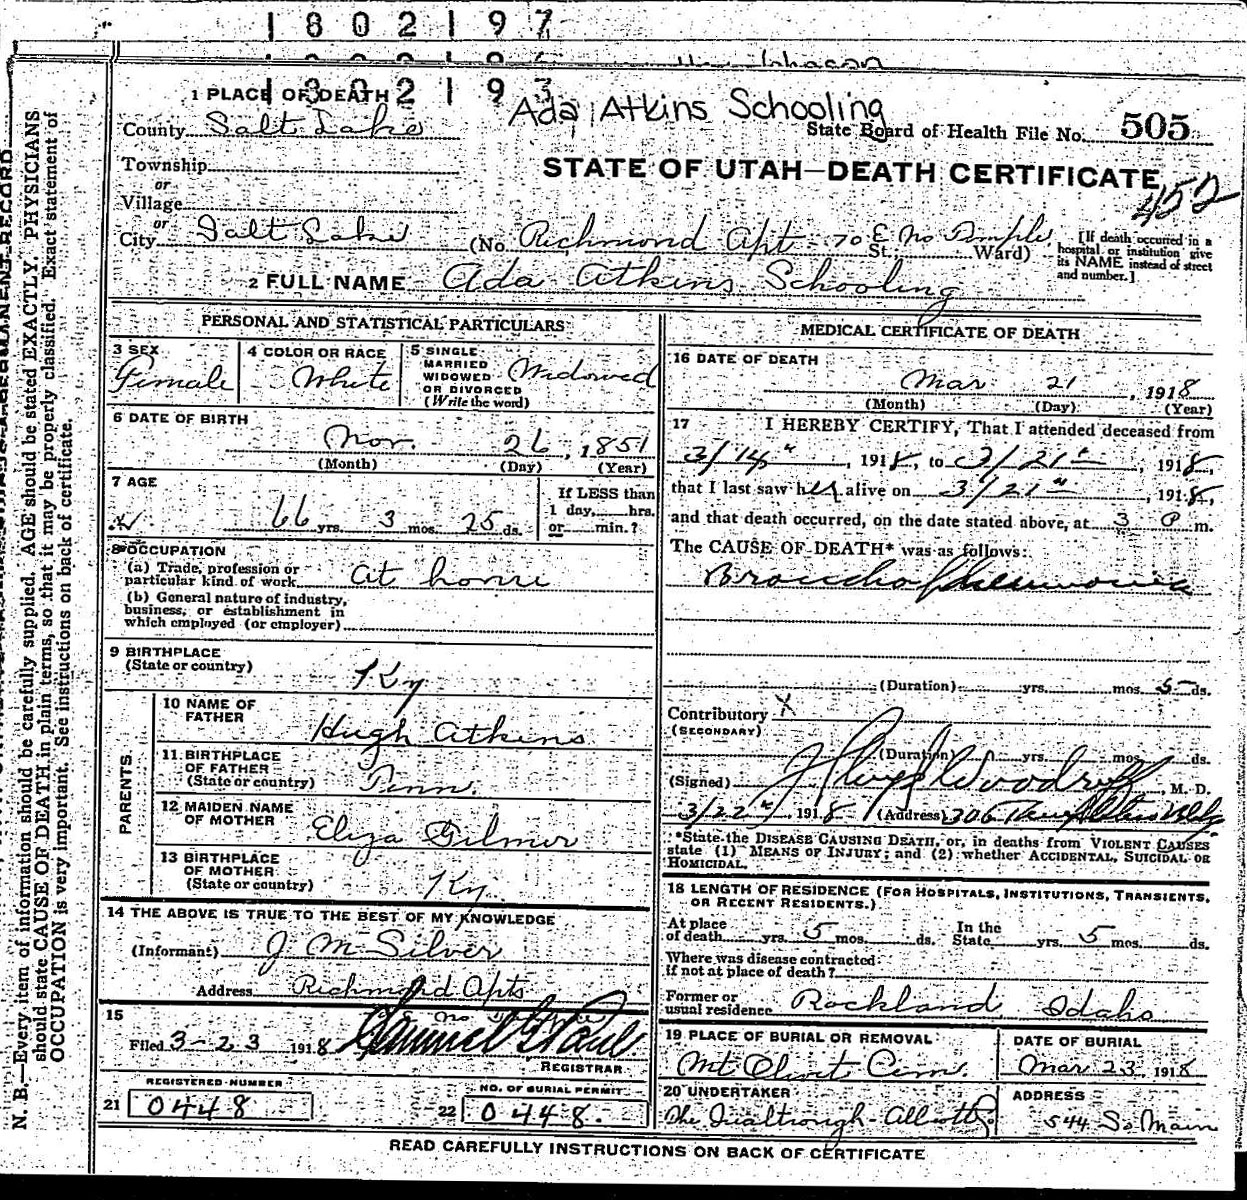 1802197
1802193
Ada Atkins Schooling
1 PLACE OF DEATH
County Salt Lake
State Board of Health File No. 505
Township
or
Village
or
City Salt Lake
STATE OF UTAH—DEATH CERTIFICATE
452
(No. Richmond Apt - 70 E No Temple St. Ward)
[If death occurred in a
hospital or institution give
its NAME instead of street
and number.]
2 FULL NAME Ada Atkins Schooling
PERSONAL AND STATISTICAL PARTICULARS
3 SEX
Female
4 COLOR OR RACE
White
5 SINGLE
MARRIED
WIDOWED
OR DIVORCED
(Write the word)
Widowed
6 DATE OF BIRTH
Nov. 26, 1851
(Month) (Day) (Year)
7 AGE
66 yrs. 3 mos. 25 ds.
If LESS than
1 day, hrs.
or min.?
8 OCCUPATION
(a) Trade, profession or
particular kind of work at home
(b) General nature of industry,
business, or establishment in
which employed (or employer)
9 BIRTHPLACE
(State or country)
Ky
PARENTS
10 NAME OF
FATHER
Hugh Atkins
11 BIRTHPLACE
OF FATHER
(State or country)
Tenn.
12 MAIDEN NAME
OF MOTHER
Eliza Gilmer
13 BIRTHPLACE
OF MOTHER
(State or country)
Ky
14 THE ABOVE IS TRUE TO THE BEST OF MY KNOWLEDGE
(Informant) J M Silver
Address Richmond Apts
15
Filed 3-23 1918
REGISTRAR
REGISTERED NUMBER
21 0448
NO. OF BURIAL PERMIT
22 0448.
MEDICAL CERTIFICATE OF DEATH
16 DATE OF DEATH
Mar 21, 1918
(Month) (Day) (Year)
17 I HEREBY CERTIFY, That I attended deceased from
3/14", 1918, to 3/21", 1918,
that I last saw her alive on 3/21", 1918,
and that death occurred, on the date stated above, at 3 P m.
The CAUSE OF DEATH* was as follows:
Broncho Pneumonia
(Duration) yrs. mos. 5 ds.
Contributory X
(SECONDARY)
(Duration) yrs. mos. ds.
(Signed) Woodruff, M. D.
3/22", 1918 (Address) 306 Bldg.
*State the DISEASE CAUSING DEATH, or, in deaths from VIOLENT CAUSES
state (1) MEANS OF INJURY; and (2) whether ACCIDENTAL, SUICIDAL OR
HOMICIDAL.
18 LENGTH OF RESIDENCE (FOR HOSPITALS, INSTITUTIONS, TRANSIENTS,
OR RECENT RESIDENTS.)
At place
of death yrs. 5 mos. ds.
In the
State yrs. 5 mos. ds.
Where was disease contracted
if not at place of death?
Former or
usual residence Rockland Idaho
19 PLACE OF BURIAL OR REMOVAL
Mt Olivet Cem.
DATE OF BURIAL
Mar 23, 1918
20 UNDERTAKER
ADDRESS
544 So Main
READ CAREFULLY INSTRUCTIONS ON BACK OF CERTIFICATE
N. B.—Every item of information should be carefully supplied. AGE should be stated EXACTLY. PHYSICIANS
should state CAUSE OF DEATH in plain terms, so that it may be properly classified. Exact statement of
OCCUPATION is very important. See instructions on back of certificate.